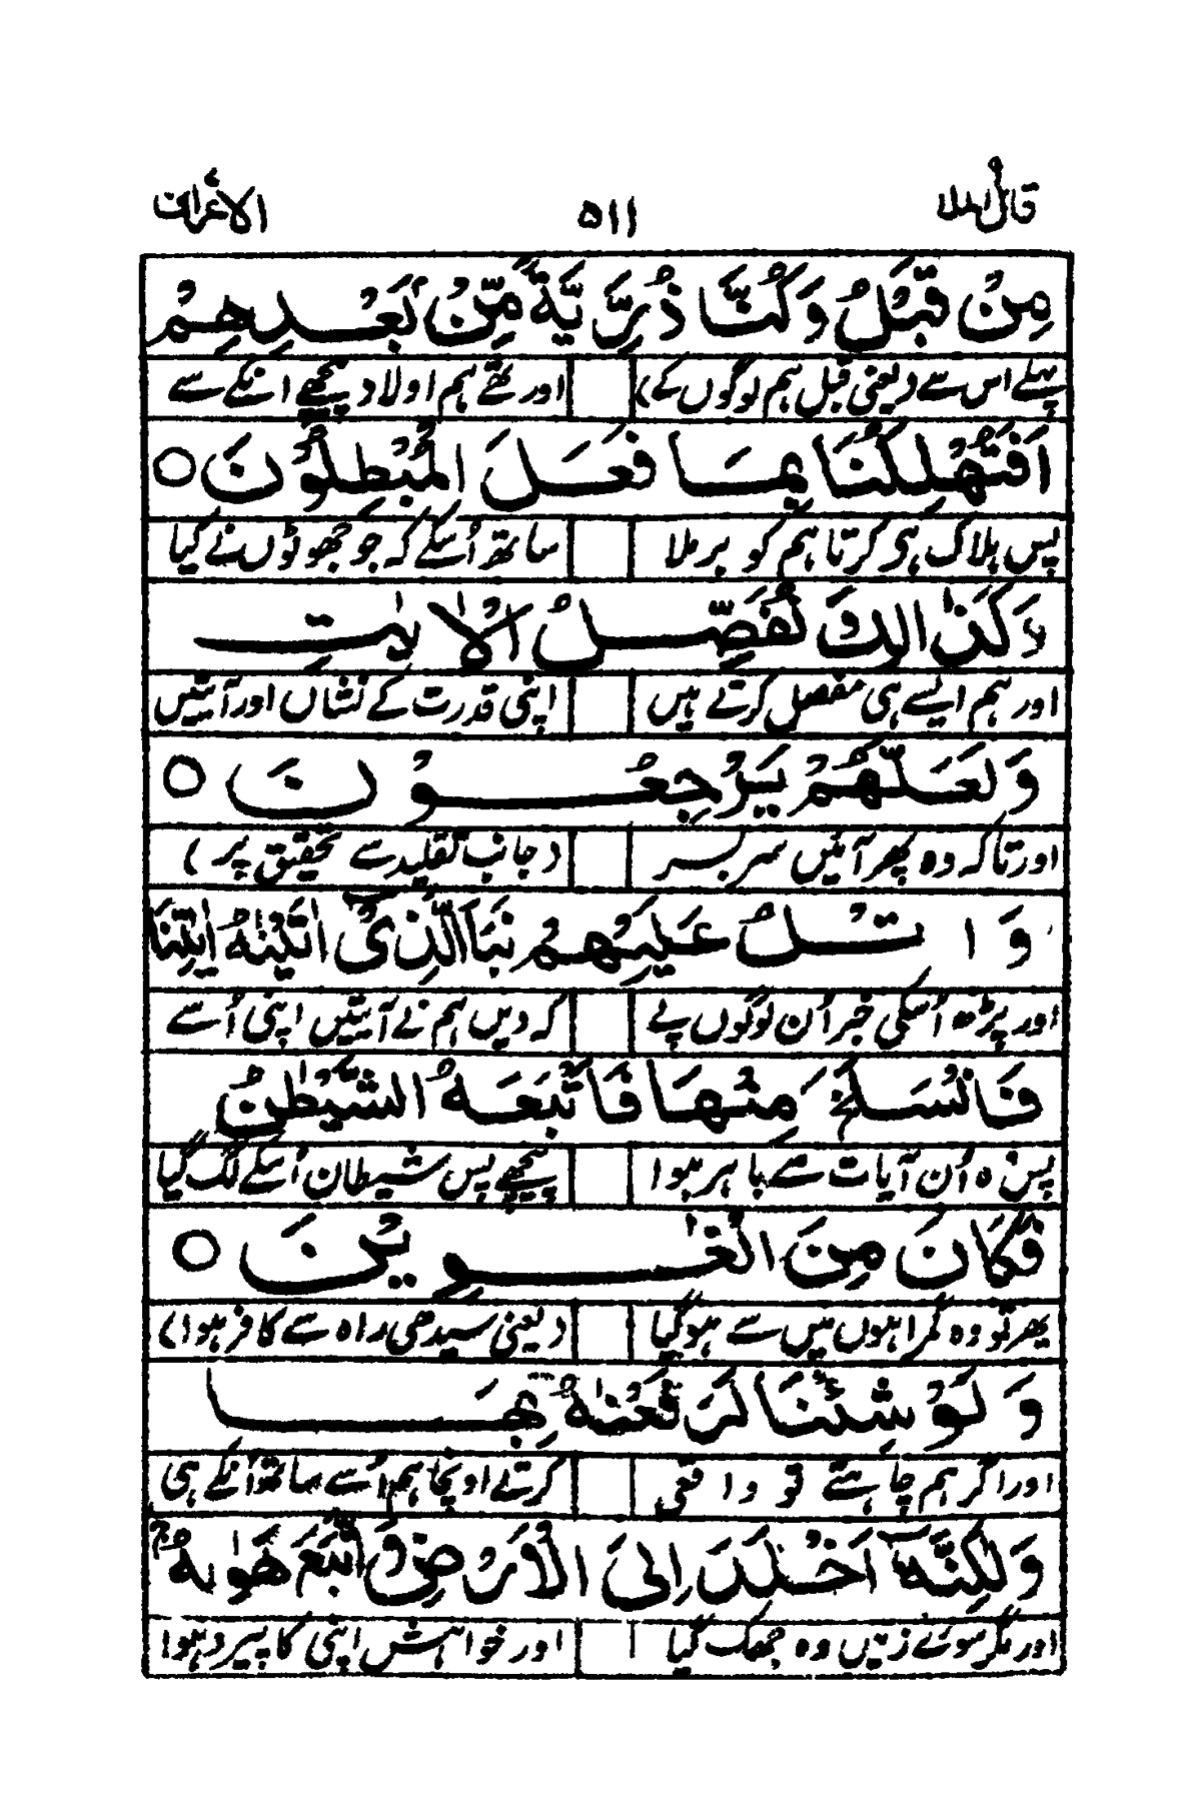 قال الملا ۹ ۵۱۱ الاعراف ۷
مِنْ قَبْلُ وَكُنَّا ذُرِّيَّةً مِّنْ بَعْدِهِمْ
پہلے اس سے (یعنی قبل ہم لوگوں کے) اور تھے ہم اولاد پیچھے انکے سے
اَفَتُهْلِكُنَا بِمَا فَعَلَ الْمُبْطِلُوْنَ ○
پس ہلاک ہی کرتا ہم کو برملا ساتھ اُسکے کہ جو جھوٹوں نے کیا
وَكَذٰلِكَ نُفَصِّلُ الْاٰيٰتِ
اور ہم ایسے ہی مفصل کرتے ہیں اپنی قدرت کے نشاں اور آیتیں
وَلَعَلَّهُمْ يَرْجِعُوْنَ ○
اور تاکہ وہ پھر آئیں سر بسر (جانب تقلید سے تحقیق پر)
وَاتْلُ عَلَيْهِمْ نَبَاَ الَّذِيْ اٰتَيْنٰهُ اٰيٰتِنَا
اور پڑھ اُسکی خبر اُن لوگوں پے کہ دیں ہم نے آیتیں اپنی اُسے
فَانْسَلَخَ مِنْهَا فَاَتْبَعَهُ الشَّيْطٰنُ
پس وہ اُن آیات سے باہر ہوا پیچھے پس شیطان اُسکے لگ گیا
فَكَانَ مِنَ الْغٰوِيْنَ ○
پھر تو وہ گمراہوں میں سے ہوگیا (یعنی سیدھی راہ سے کافر ہوا)
وَلَوْ شِئْنَا لَرَفَعْنٰهُ بِهَا
اور اگر ہم چاہتے تو واقعی کرتے اونچا ہم اُسے ساتھ اُنکے ہی
وَلٰكِنَّهٗٓ اَخْلَدَ اِلَى الْاَرْضِ وَاتَّبَعَ هَوٰىهُ ۚ
اور مگر سوئے زمیں وہ جھک گیا اور خواہش اپنی کا پیرو ہوا